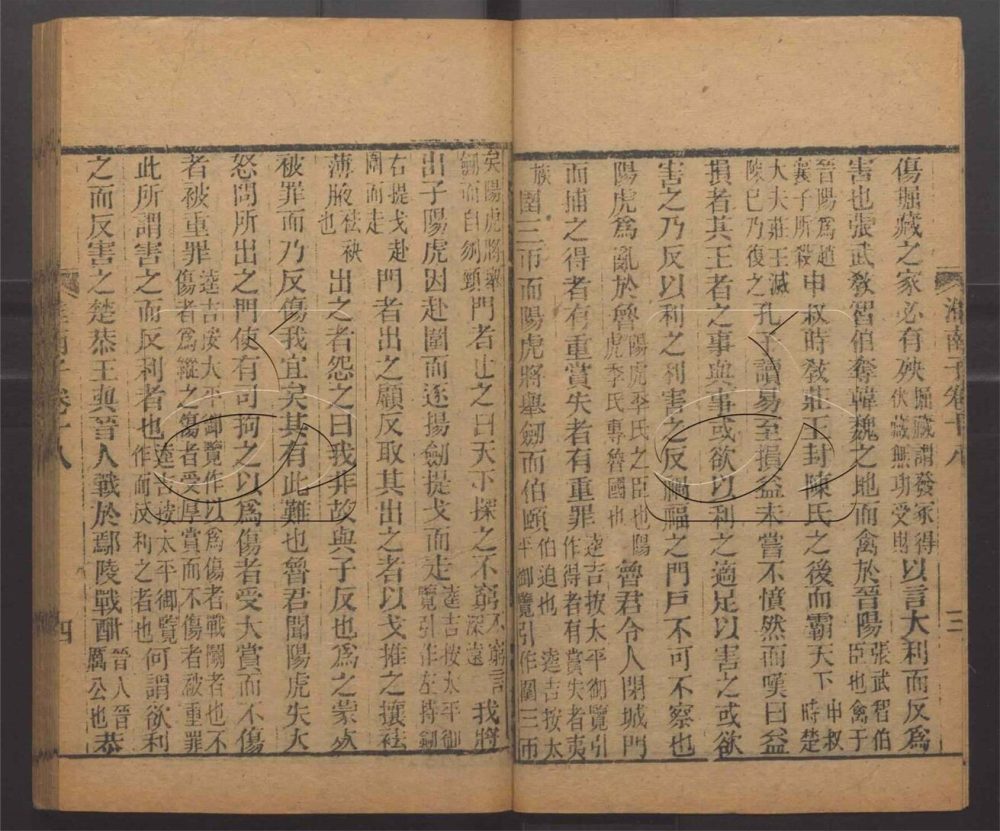 淮南子卷十八 三
傷掘藏之家必有殃掘藏謂發冢得伏藏無功受財以言大利而反爲
害也張武教智伯奪韓魏之地而禽於晉陽張武智伯臣也禽于
晉陽爲趙襄子所殺申叔時教莊王封陳氏之後而霸天下申叔時楚
大夫莊王滅陳巳乃復之孔子讀易至損益未嘗不憤然而嘆曰益
損者其王者之事與事或欲以利之適足以害之或欲
害之乃反以利之利害之反禍福之門戶不可不察也
陽虎爲亂於魯陽虎季氏之臣也陽虎季氏專魯國也魯君令人閉城門
而捕之得者有重賞失者有重罪逵吉按太平御覽引作得者有賞失者夷
族圍三帀而陽虎將舉劒而伯頤伯迫也逵吉按太平御覽引作圍三帀
矣陽虎將舉劒而自刎頸門者止之曰天下探之不窮不窮言深遠我將
出子陽虎因赴圍而逐揚劒提戈而走逵吉按太平御覽引作左持劒
右提戈赴圍而走門者出之顧反取其出之者以戈推之攘祛
薄腋祛袂也出之者怨之曰我非故與子反也爲之蒙死
被罪而乃反傷我宜矣其有此難也魯君聞陽虎失大
怒問所出之門使有司拘之以爲傷者受大賞而不傷
者被重罪逵吉按太平御覽作以爲傷者戰鬭者也不傷者爲縱之傷者受厚賞而不傷者被重罪
此所謂害之而反利者也逵吉按太平御覽作而反利之者也何謂欲利
之而反害之楚恭王與晉人戰於鄢陵戰酣晉人晉厲公也恭
淮南子卷十八 四